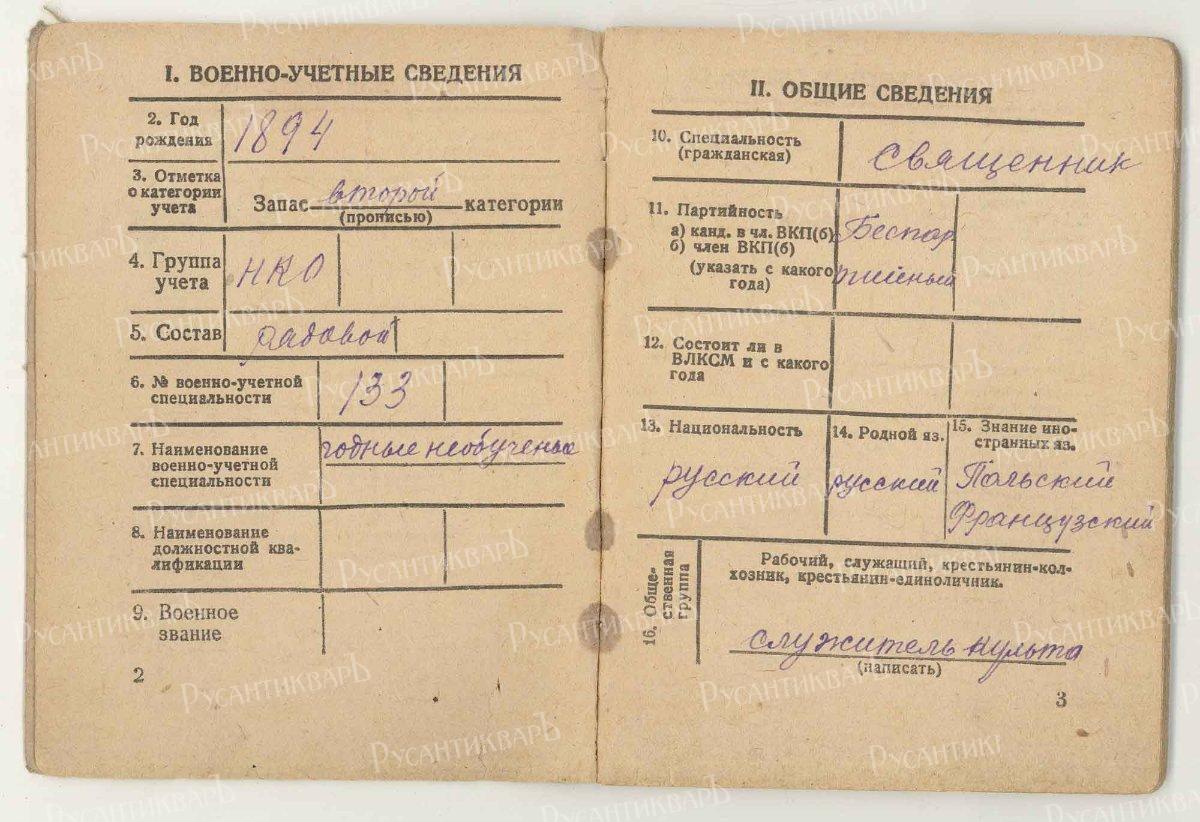 I. ВОЕННО-УЧЕТНЫЕ СВЕДЕНИЯ
2. Год
рождения
1894
3. Отметка
о категории
учета
Запас второй категории
(прописью)
4. Группа
учета
НКО
5. Состав
рядовой
6. № военно-учетной
специальности
133
7. Наименование
военно-учетной
специальности
годные необученые
8. Наименование
должностной ква-
лификации
9. Военное
звание
2
II. ОБЩИЕ СВЕДЕНИЯ
10. Специальность
(гражданская)
священник
11. Партийность
а) канд. в чл. ВКП(б)
б) член ВКП(б)
(указать с какого
года)
Беспар
тийный
12. Состоит ли в
ВЛКСМ и с какого
года
13. Национальность
русский
14. Родной яз.
русский
15. Знание ино-
странных яз.
Польский
Французский
16. Обще-
ственная
группа
Рабочий, служащий, крестьянин-кол-
хозник, крестьянин-единоличник.
служитель культа
(написать)
3
РусАнтикваръ